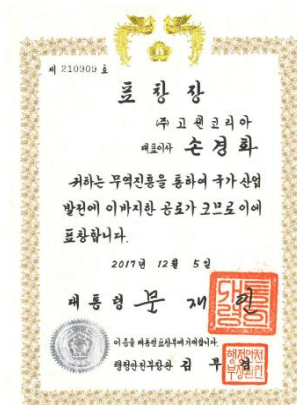 제 210909 호
표창장
(주) 고센코리아
대표이사 손경화
귀하는 무역진흥을 통하여 국가 산업
발전에 이바지한 공로가 크므로 이에
표창합니다.
2017년 12월 5일
대통령 문재인
이 증을 대통령표창부에 기재합니다.
행정안전부장관 김부겸